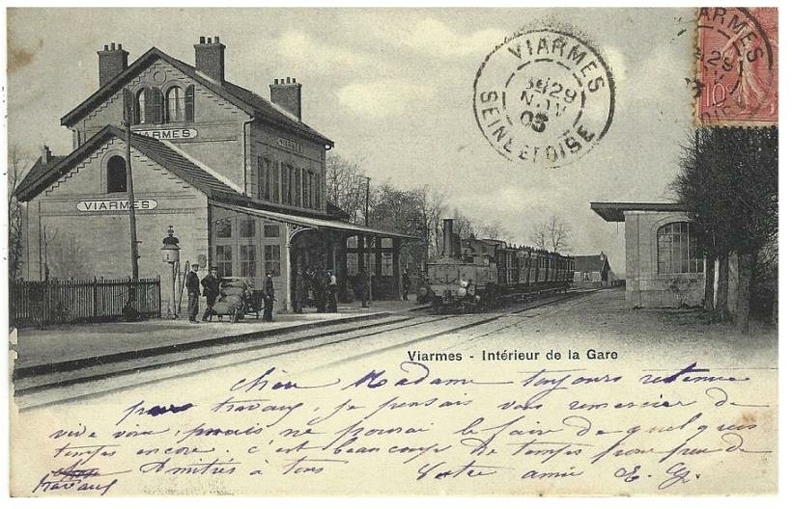 VIARMES
29
NOV
05
SEINE ET OISE
VIARMES
29
10
VIARMES
VIARMES
VIARMES
Viarmes - Intérieur de la Gare
chère Madame toujours retenue
pour travaux, je pensais vous remercier de
vive voix, mais ne pourai le faire de quelques
temps encore, c'est beaucoup de temps pour peu de
travaux Amitiés à tous Votre amie E. G.